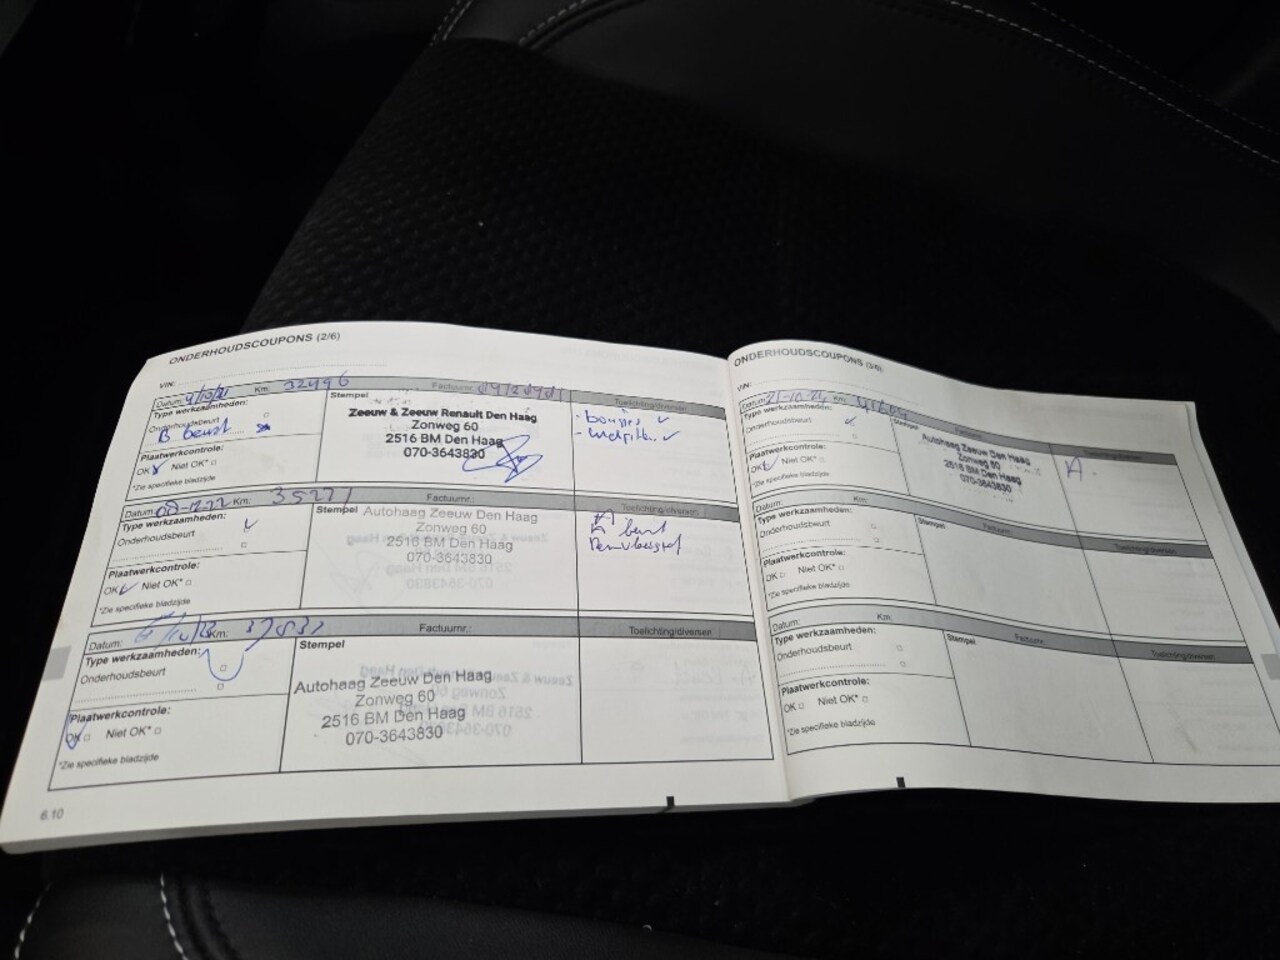 ONDERHOUDSCOUPONS (2/6)
VIN:
Datum: 4/10/21 Km: 32496 Factuurnr.:
Type werkzaamheden:
Onderhoudsbeurt
B beurt
Plaatwerkcontrole:
OK Niet OK*
*Zie specifieke bladzijde
Stempel
Zeeuw & Zeeuw Renault Den Haag
Zonweg 60
2516 BM Den Haag
070-3643830
Toelichting/diversen
- bougies
Datum: Km: 35271 Factuurnr.:
Type werkzaamheden:
Onderhoudsbeurt
Plaatwerkcontrole:
OK Niet OK*
*Zie specifieke bladzijde
Stempel
Autohaag Zeeuw Den Haag
Zonweg 60
2516 BM Den Haag
070-3643830
Toelichting/diversen
A beurt
Remvloeistof
Datum: Km: Factuurnr.:
Type werkzaamheden:
Onderhoudsbeurt
Plaatwerkcontrole:
OK Niet OK*
*Zie specifieke bladzijde
Stempel
Autohaag Zeeuw Den Haag
Zonweg 60
2516 BM Den Haag
070-3643830
Toelichting/diversen
6.10
ONDERHOUDSCOUPONS (3/6)
VIN:
Datum: Km: Factuurnr.:
Type werkzaamheden:
Onderhoudsbeurt
Plaatwerkcontrole:
OK Niet OK*
*Zie specifieke bladzijde
Stempel
Autohaag Zeeuw Den Haag
Zonweg 60
2516 BM Den Haag
070-3643830
Toelichting/diversen
A.
Datum: Km: Factuurnr.:
Type werkzaamheden:
Onderhoudsbeurt
Plaatwerkcontrole:
OK Niet OK*
*Zie specifieke bladzijde
Stempel
Toelichting/diversen
Datum: Km: Factuurnr.:
Type werkzaamheden:
Onderhoudsbeurt
Plaatwerkcontrole:
OK Niet OK*
*Zie specifieke bladzijde
Stempel
Toelichting/diversen